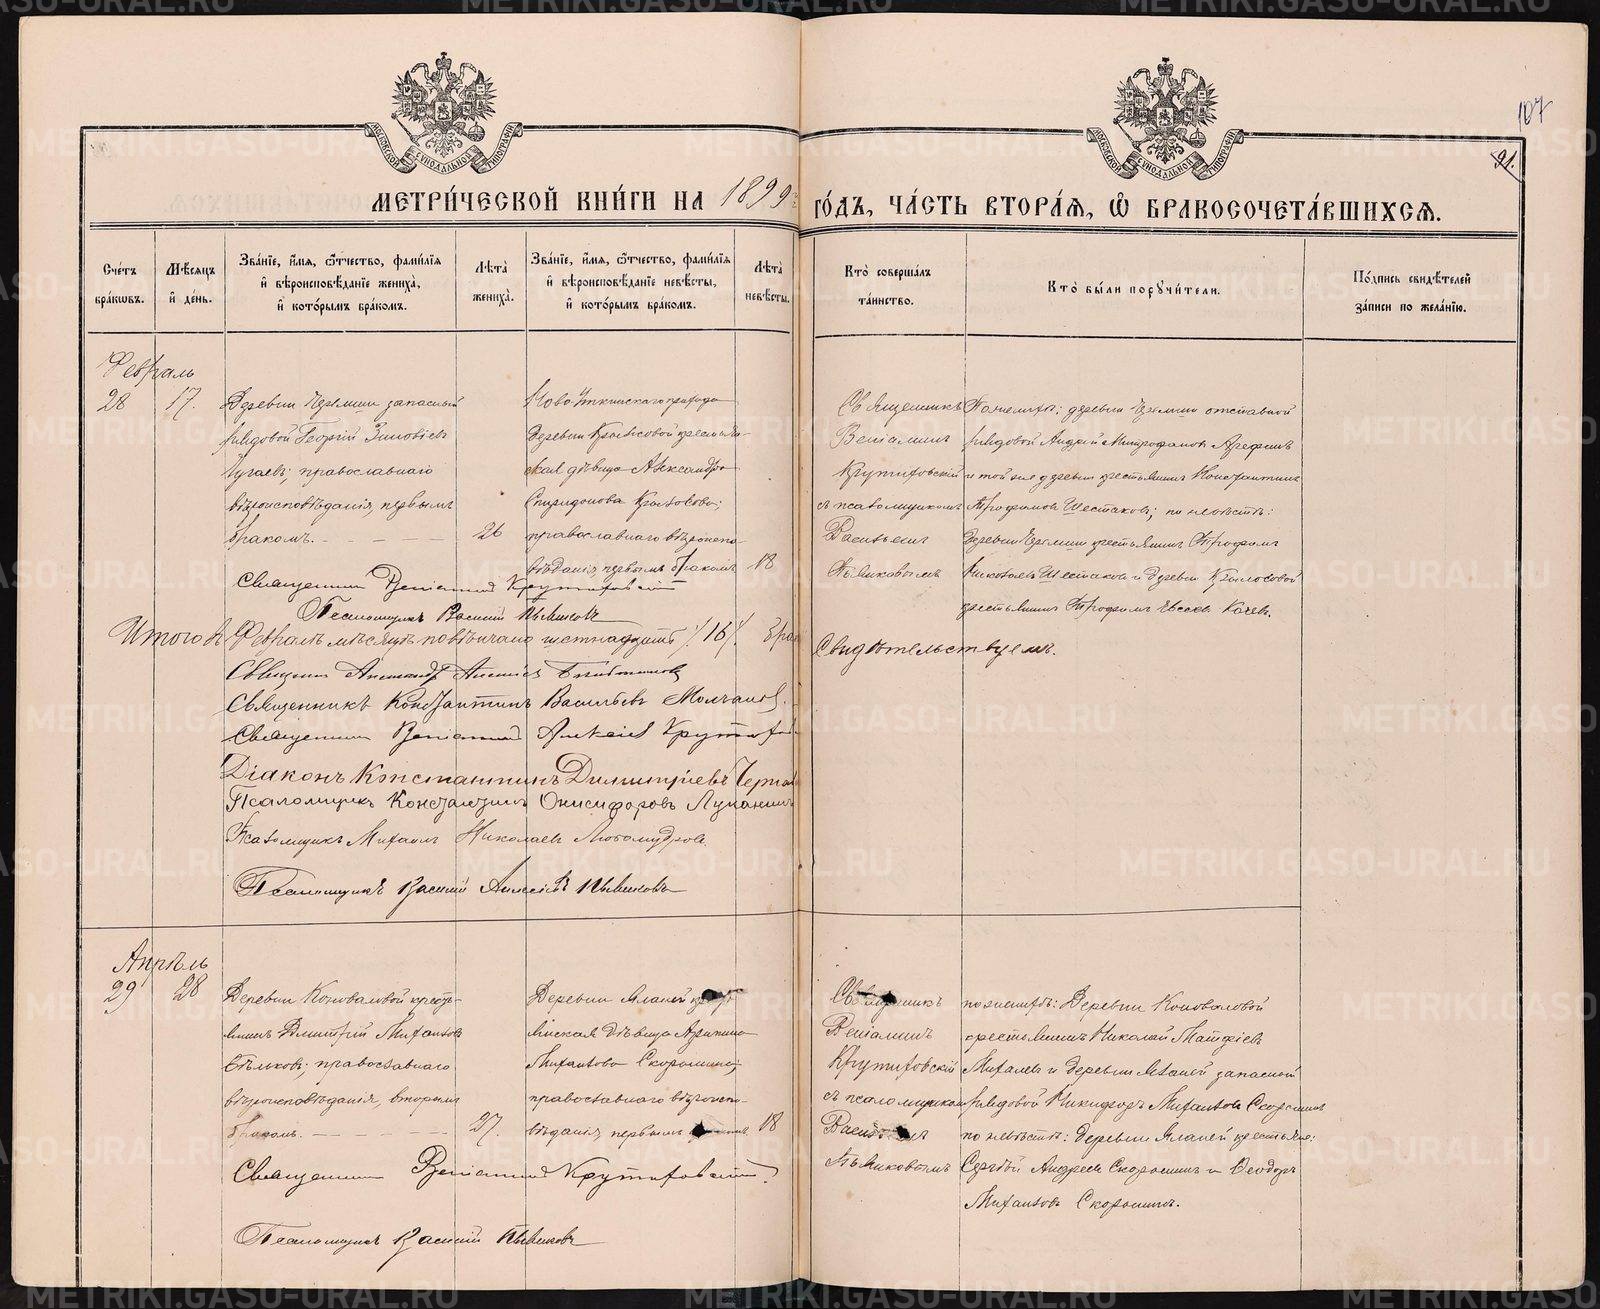 107
91.
МОСКОВСКОЙ СѴНОДАЛЬНОЙ ТИПОГРАФИИ
МОСКОВСКОЙ СѴНОДАЛЬНОЙ ТИПОГРАФИИ
МЕТРИ́ЧЕСКОЙ КНИ́ГИ НА 1899 ГО́ДЪ, ЧА́СТЬ ВТОРА́Я, Ѡ БРАКОСОЧЕТА́ВШИХСЯ.
Сче́тъ бра́кѡвъ.
Мѣ́сяцъ и҆ де́нь.
Зва́нїе, и҆́мя, ѻ҆́тчество, фами́лїя и҆ вѣроисповѣ́данїе жениха̀, и҆ кото́рымъ бра́комъ.
Лѣта̀ жениха̀.
Зва́нїе, и҆́мя, ѻ҆́тчество, фами́лїя и҆ вѣроисповѣ́данїе невѣ́сты, и҆ кото́рымъ бра́комъ.
Лѣта̀ невѣ́сты.
Кто̀ соверша́лъ та́инство.
Кто̀ бы́ли порꙋчи́тели.
По́дпись свидѣ́телей за́писи по жела́нїю.
Февраль
28
17.
Деревни запасный
рядовой Георгій Зиновіевъ
Чугаевъ; православнаго
вѣроисповѣданія, первымъ
бракомъ.
26
Ново-Уткинскаго прихода
деревни Крылосовой крестьян-
ская дѣвица Александра
Спиридонова Крылосова;
православнаго вѣроиспо-
вѣданія, первымъ бракомъ
18
Священникъ
Веніаминъ
Крутиховскій
съ псаломщикомъ
Васильемъ
Пьянковымъ
По женихѣ: деревни отставной
рядовой Андрей Митрофановъ Арефинъ
и той же деревни крестьянинъ Константинъ
Трофимовъ Шестаковъ; по невѣстѣ:
деревни крестьянинъ Трофимъ
Николаевъ Шестаковъ и деревни Крылосовой
крестьянинъ Трофимъ Евсеевъ
Священникъ Веніаминъ Крутиховскій
Псаломщикъ Василій Пьянковъ
Итого въ Февралѣ мѣсяцѣ повѣнчано шестнадцать /16/. бра
Свидѣтельствуемъ.
Священникъ Александръ Алексіевъ
Священникъ Константинъ Васильевъ Молчановъ.
Священникъ Веніаминъ Алексіевъ Крутихов
Діаконъ Константинъ Димитріевъ
Псаломщикъ Константинъ Онисифоровъ Луканинъ
Псаломщикъ Михаилъ Николаевъ Любомудровъ
Псаломщикъ Василій Алексіевъ Пьянковъ
Апрѣль
29
28
Деревни Коноваловой кресть-
янинъ Димитрій Михаиловъ
Бѣльковъ; православнаго
вѣроисповѣданія, вторымъ
бракомъ.
27.
Деревни Яланей
янская дѣвица Агрипина
Михаилова Скорынина;
православнаго вѣроиспо-
вѣданія, первымъ
18
Священникъ
Веніаминъ
Крутиховскій
съ псаломщикомъ
Васильемъ
Пьянковымъ
по женихѣ: Деревни Коноваловой
крестьянинъ Николай Матфіевъ
Михалевъ и деревни Яланей запасной
рядовой Никифоръ Михаиловъ Скорынинъ
по невѣстѣ: деревни Яланей крестьяне:
Сергѣй Андреевъ Скорынинъ и Ѳеодоръ
Михаиловъ Скорынинъ.
Священникъ Веніаминъ Крутиховскій.
Псаломщикъ Василій Пьянковъ